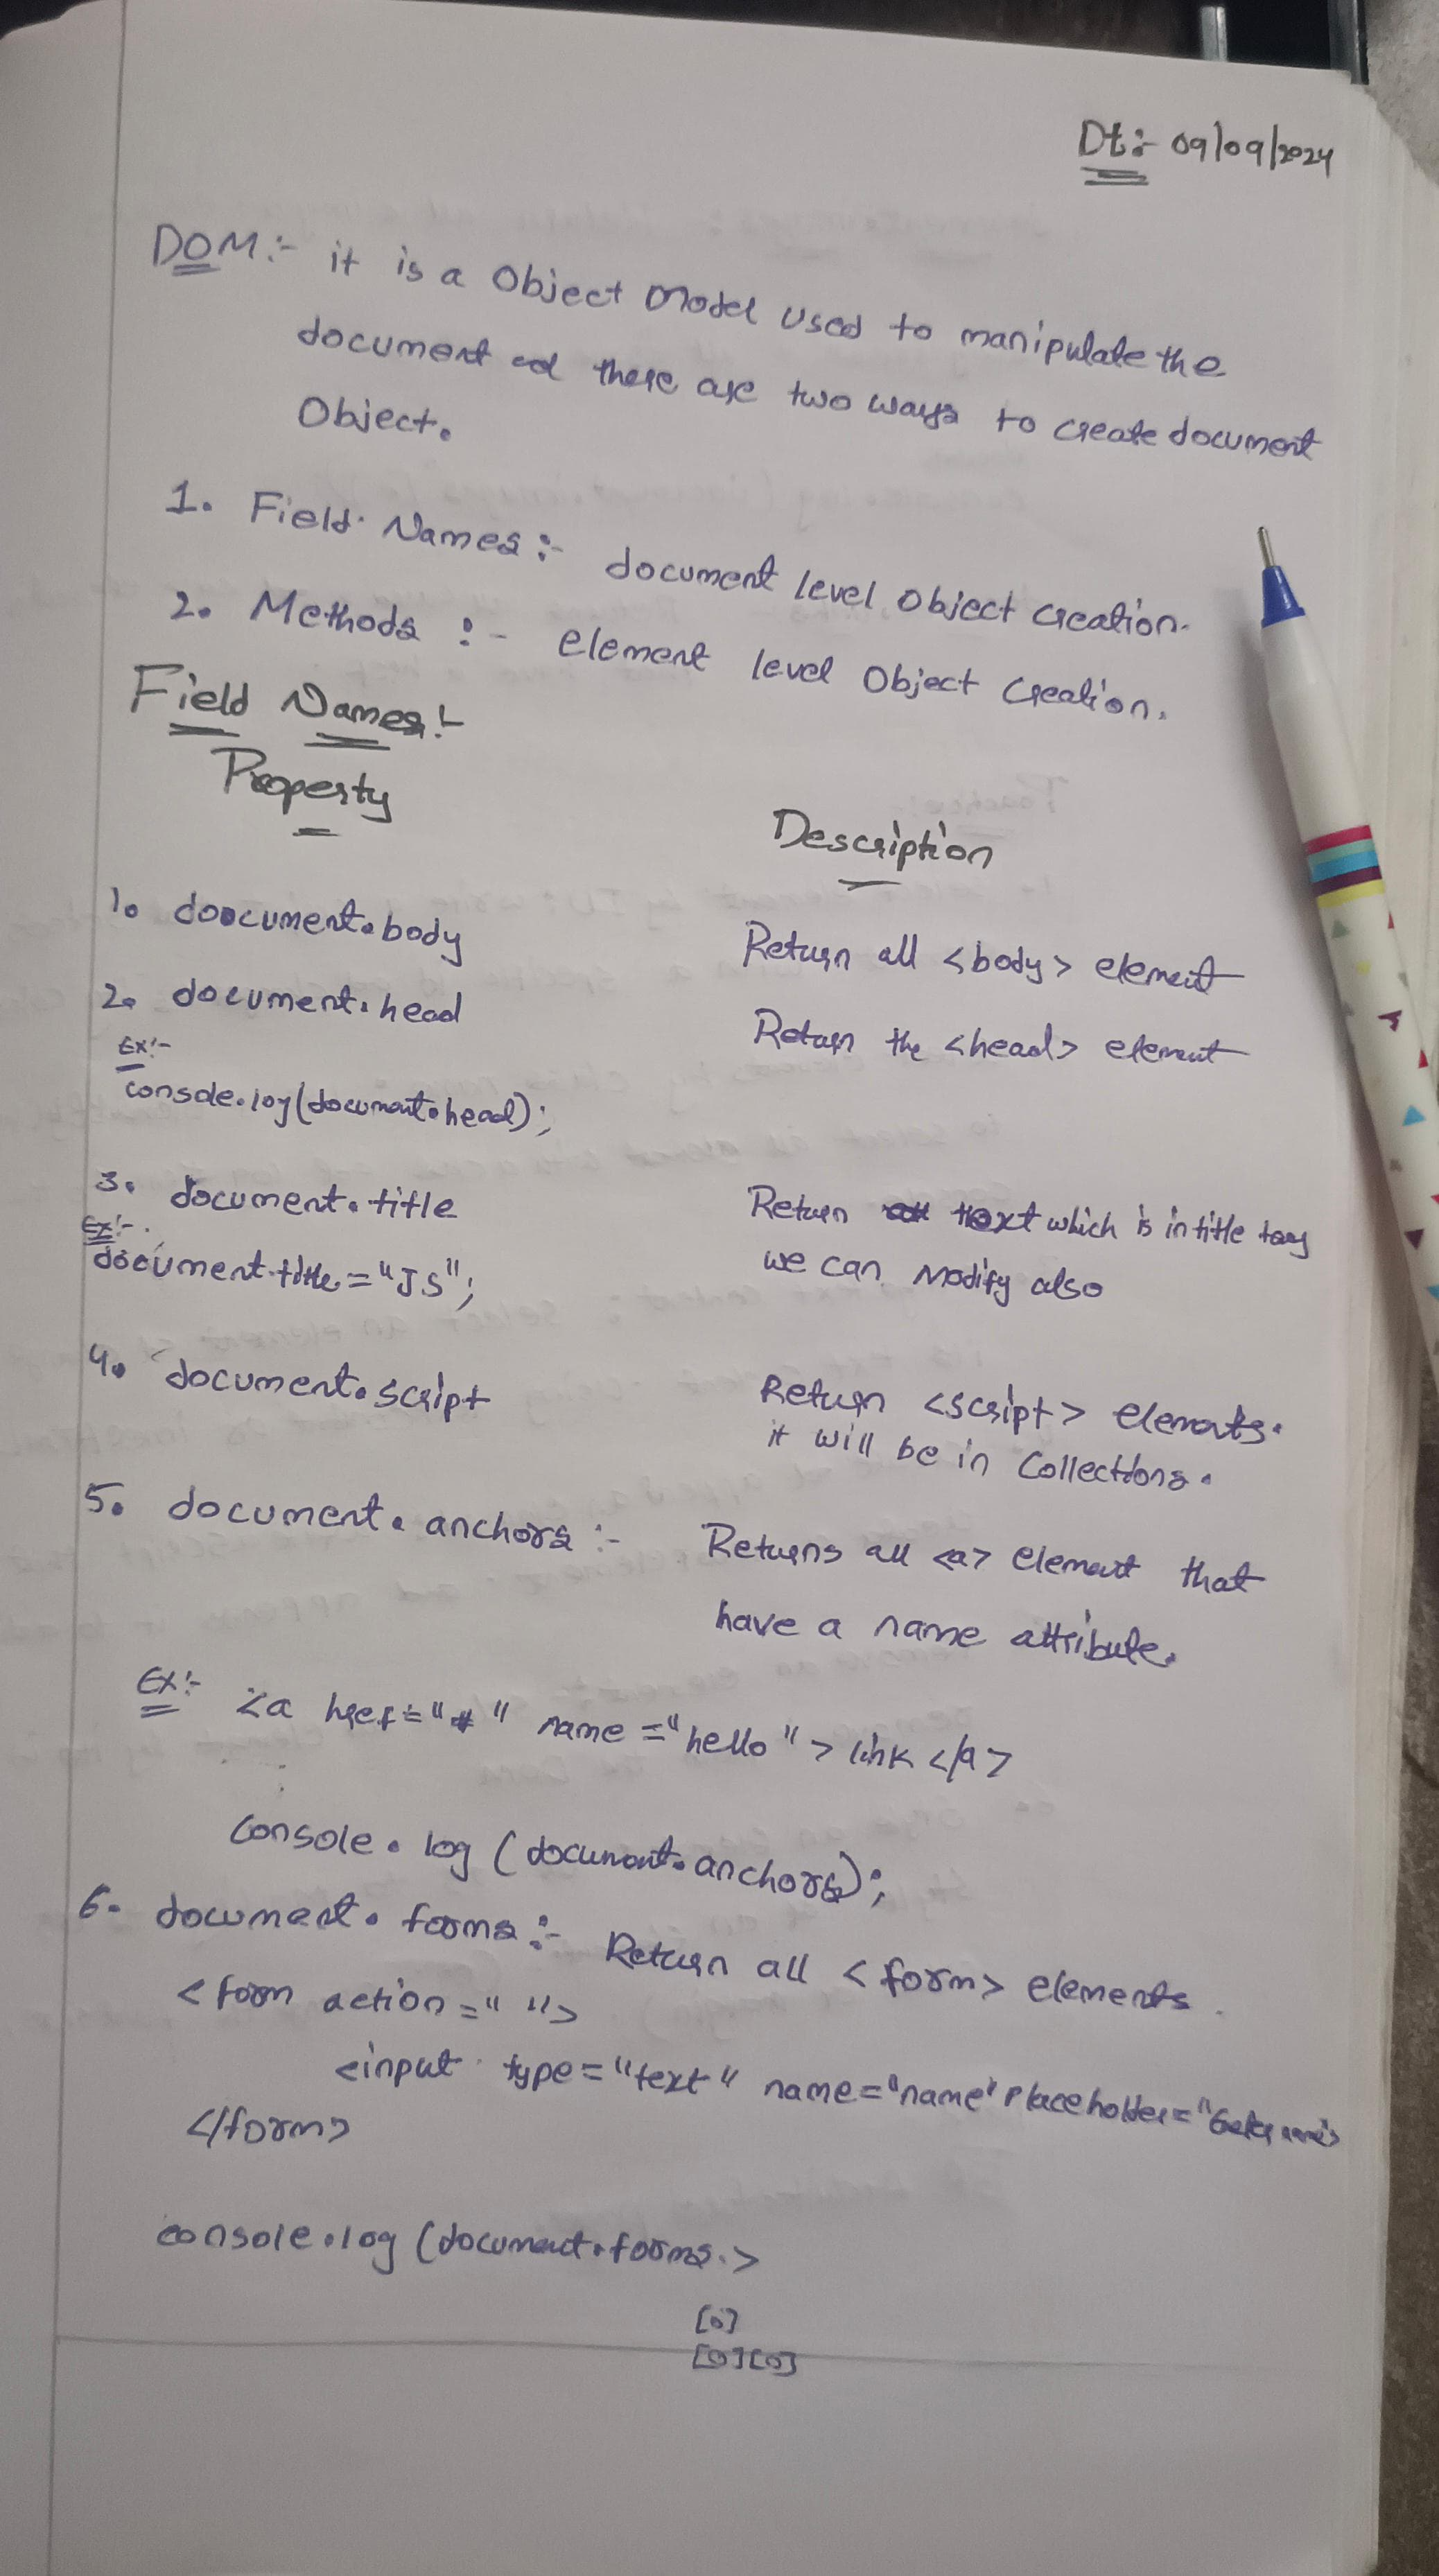 Dt:- 09/09/2024
DOM:- it is a Object Model used to manipulate the
document and there are two ways to create document
Object.
1. Field Names :- document level object creation.
2. Methods :- element level Object Creation.
Field Names:-
Property Description
1. doocument.body Return all <body> element
2. document.head Return the <head> element
Ex:-
console.log(document.head);
3. document.title Return text which is in title tag
Ex:- we can Modify also
document.title = "JS";
4. document.script Return <script> elements.
it will be in Collections.
5. document.anchors :- Returns all <a> element that
have a name attribute.
Ex:- <a href="#" name="hello"> link </a>
console.log (document.anchors);
6. document.forms :- Return all <form> elements.
<form action=" ">
<input type="text" name="name" Placeholder="
</form>
console.log (document.forms.>
[0]
[0][0]